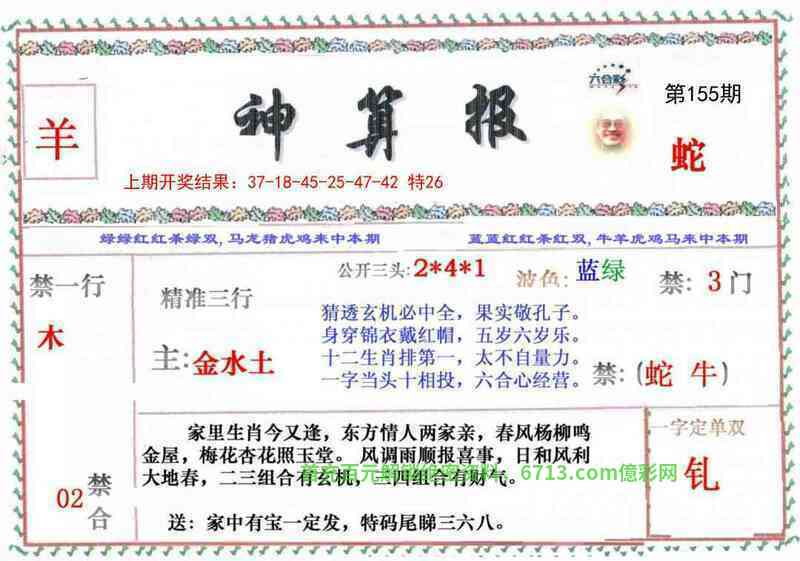 六合彩
第155期
羊
神算报
蛇
上期开奖结果：37-18-45-25-47-42 特26
绿绿红红杀绿双,马龙猪虎鸡来中本期
蓝蓝红红杀红双,牛羊虎鸡马来中本期
禁一行
木
精准三行
主:金水土
公开三头:2*4*1
波色:蓝绿
禁:3门
猜透玄机必中全，果实敬孔子。
身穿锦衣戴红帽，五岁六岁乐。
十二生肖排第一，太不自量力。
一字当头十相投，六合心经营。
禁:(蛇 牛)
家里生肖今又逢，东方情人两家亲，春风杨柳鸣
金屋，梅花杏花照玉堂。风调雨顺报喜事，日和风利
大地春，二三组合有玄机，三四组合有财气。
6713.com億彩网
送：家中有宝一定发，特码尾睇三六八。
02
禁合
一字定单双
钆